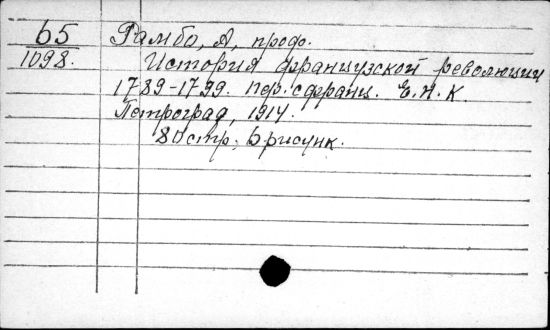 65 Рамбо, А, проф.
1098. История французской революции
1789-1799. Пер. с франц. Е.Н.К.
Петроград, 1914.
80 стр; 6 рисунк.